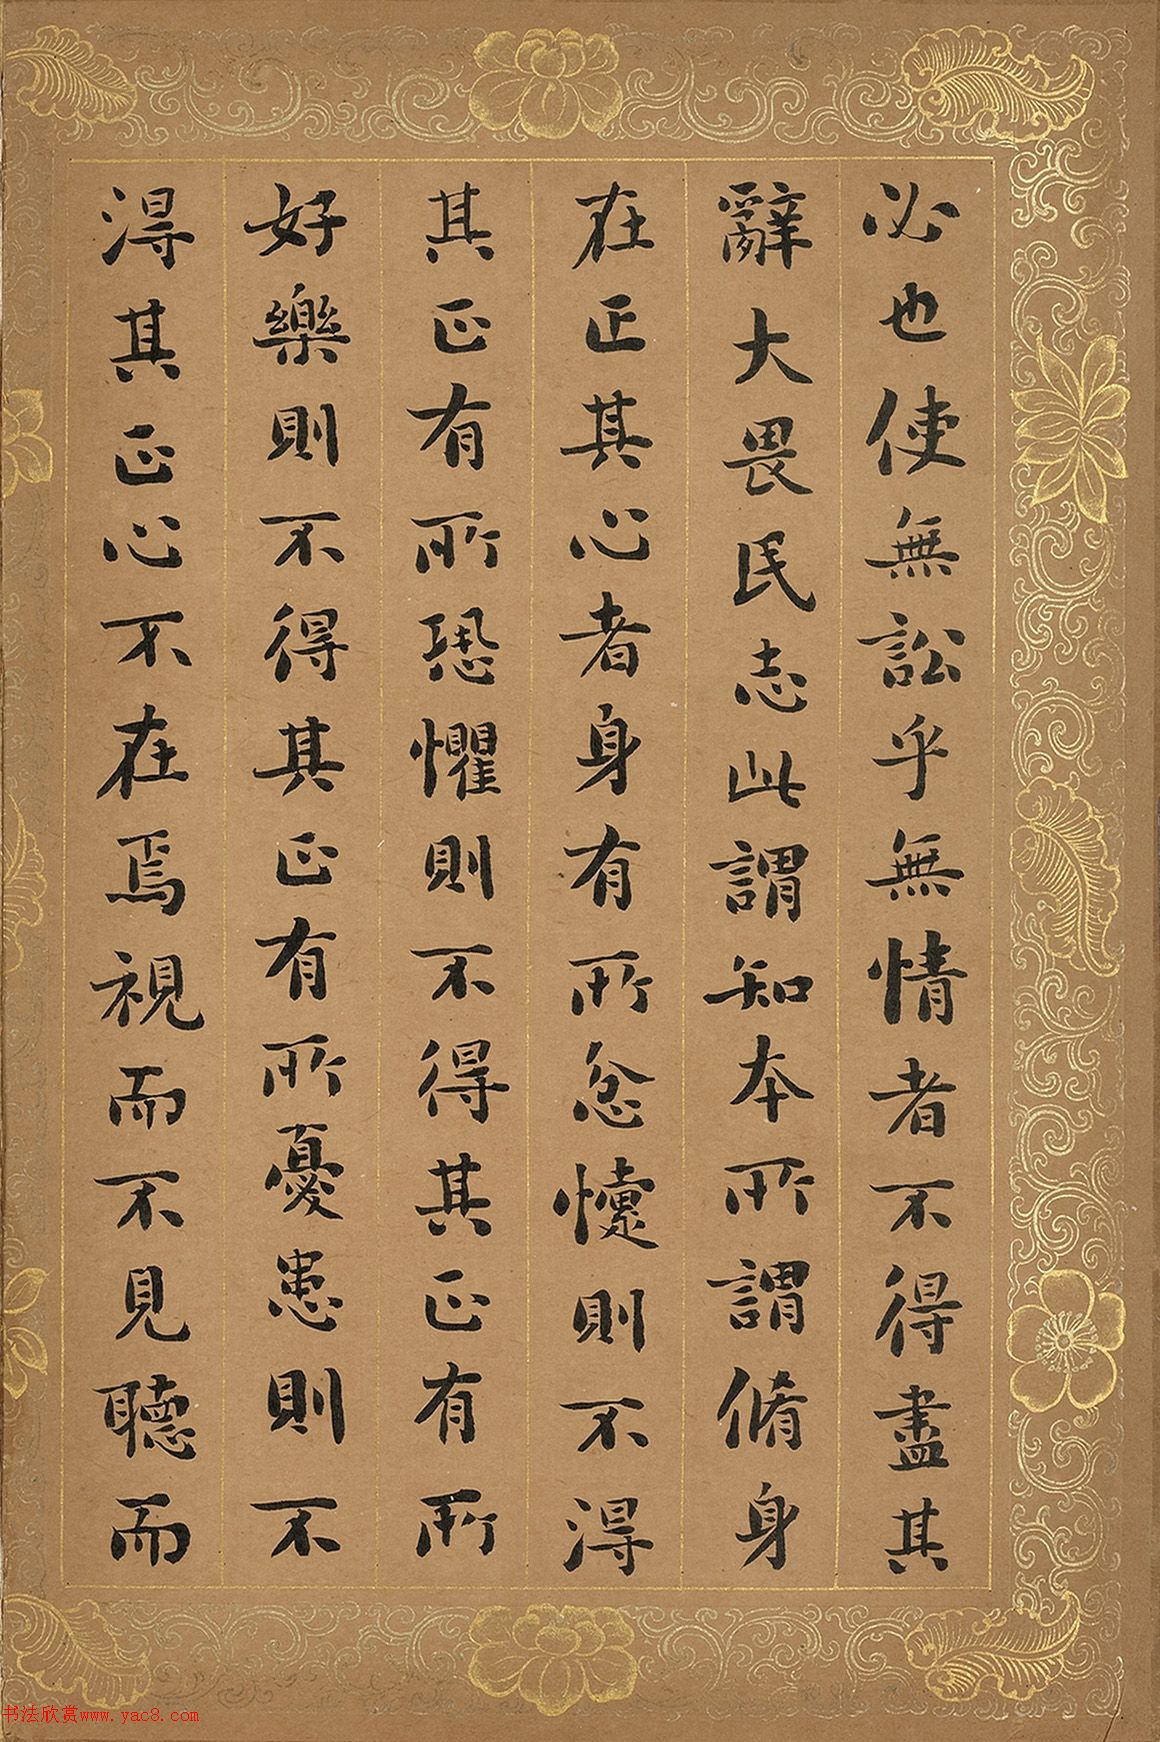 必也使無訟乎無情者不得盡其
辭大畏民志此謂知本所謂脩身
在正其心者身有所忿懥則不得
其正有所恐懼則不得其正有所
好樂則不得其正有所憂患則不
得其正心不在焉視而不見聽而
书法欣赏www.yac8.com